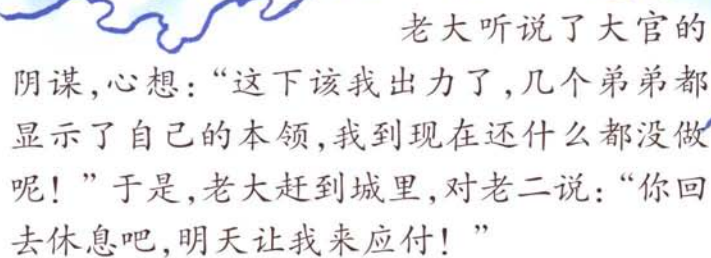 老大听说了大官的
阴谋,心想:“这下该我出力了,几个弟弟都
显示了自己的本领,我到现在还什么都没做
呢!”于是,老大赶到城里,对老二说:“你回
去休息吧,明天让我来应付!”